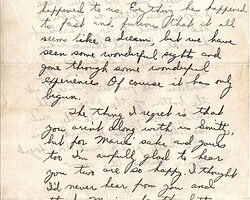 happened to us. Everything has happened
so fast and furious that it all
seems like a dream, but we have
seen some wonderful sights and
gone though some wonderful
experience. Of course it has only
begun.
The thing I regret is that
you arent along with us Smitty,
but for Maries sake and yours
too I'm awfully glad to hear
you two are so happy. I thought
I'd never hear from you and